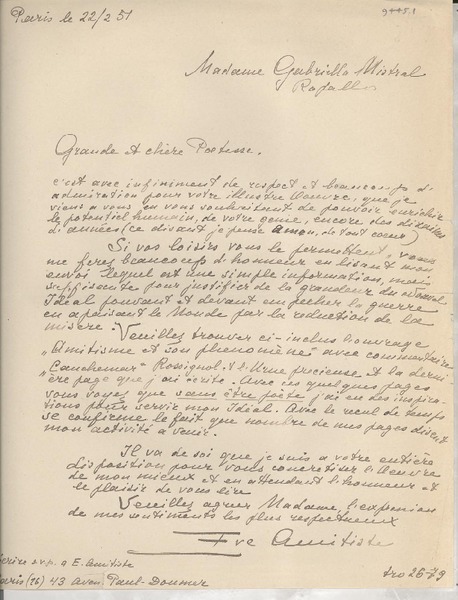 Paris le 22/2 51
Madame Gabriella Mistral
Rapallo
Grande et chère Poétesse.
c'est avec infiniment de respect et beaucoup d'
admiration pour votre illustre Oeuvre, que je
viens a vous en vous souhaitant de pouvoir enrichir
le potentiel humain, de votre genie, encore des dizaines
d'années (ce disant je pense amon, de tout coeur)
Si vos loisirs vous le permettent, vous
me feres beaucoup d'honneur en lisant mon
envoi lequel est une simple information, mais
suffisante pour justifier de la grandeur du
Idéal pouvant et devant empecher la guerre
en apaisant le Monde par la reduction de la
misère. Veuilles trouver ci-inclus l'ouvrage
"Amitisme et son phenomène" avec commentaire
"Cauchemar" Rossignol, et l'Urne precieuse et la derni-
ère page que j'ai écrite. Avec ces quelques pages
vous voyez que sans être poète j'ai eu des inspira-
tions pour servir mon Idéal. Avec le recul de temps
se confirme le fait que nombre de mes pages disent
mon activité a venir.
Il va de soi que je suis a votre entière
disposition pour vous concretiser l'Oeuvre
de mon mieux et en attendant l'honneur et
le plaisir de vous lire
Veuilles agreer Madame, l'expression
de mes sentiments les plus respectueux
Eve Amitiste
écrire s.v.p. a E. Amitiste
Paris (16) 43 Aven. Paul-Doumer
tro 26-79